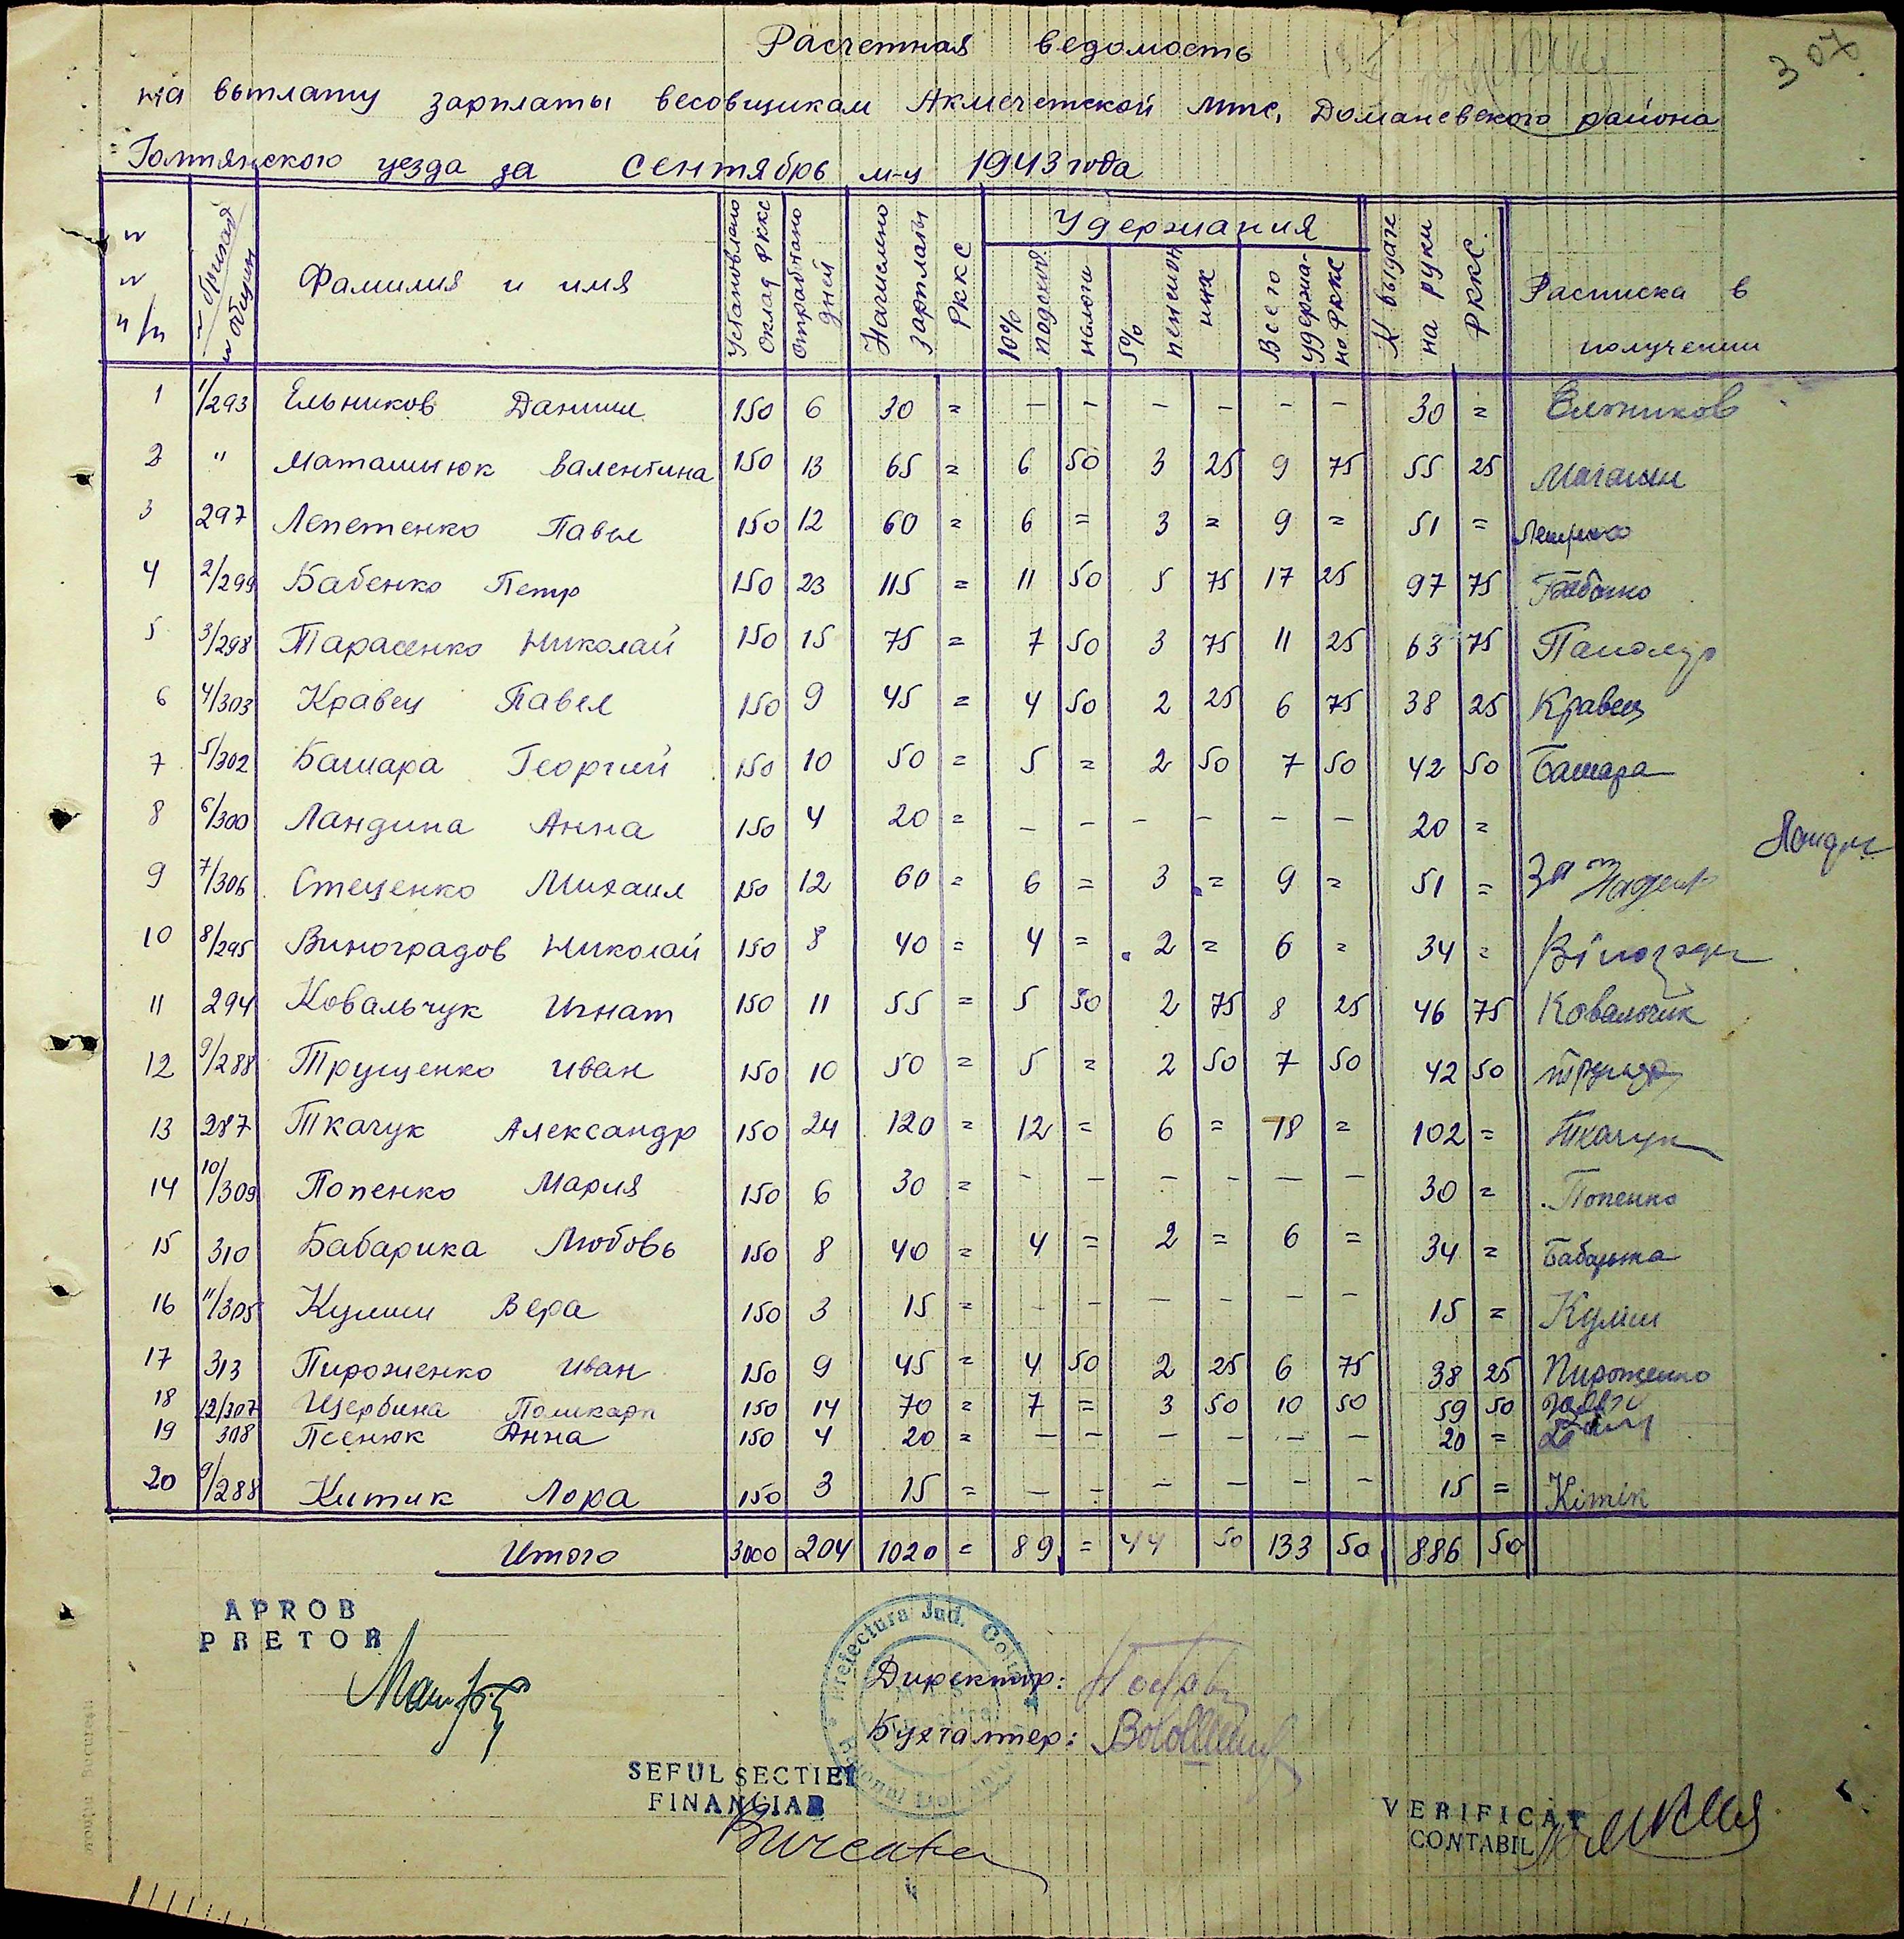 307
Расчетная ведомость
на выплату зарплаты весовщикам Акмечетской мтс, Доманевского района
Голтянского уезда за сентябрь м-ц 1943 года
№ № п/п № бригад № общин Фамилия и имя Установлено оклад РККС Отработано дней Начислено зарплаты РККС Удержания К выдаче на руки РККС Расписка в получении
10% подоход. налога 5% пенсион Всего удержано РККС
1 1/293 Ельников Даниил 150 6 30 = – – – – – – 30 = Ельников
2 " Маташнюк Валентина 150 13 65 = 6 50 3 25 9 75 55 25
3 297 Лепетенко Павел 150 12 60 = 6 = 3 = 9 = 51 =
4 2/299 Бабенко Петр 150 23 115 = 11 50 5 75 17 25 97 75
5 3/298 Тарасенко Николай 150 15 75 = 7 50 3 75 11 25 63 75
6 4/303 Кравец Павел 150 9 45 = 4 50 2 25 6 75 38 25 Кравец
7 5/302 Башара Георгий 150 10 50 = 5 = 2 50 7 50 42 50 Башара
8 6/300 Ландина Анна 150 4 20 = – – – – – – 20 =
9 7/306 Стеценко Михаил 150 12 60 = 6 = 3 = 9 = 51 = За
10 8/295 Виноградов Николай 150 8 40 = 4 = 2 = 6 = 34 =
11 294 Ковальчук Игнат 150 11 55 = 5 50 2 75 8 25 46 75 Ковальчик
12 9/288 Трущенко Иван 150 10 50 = 5 = 2 50 7 50 42 50
13 287 Ткачук Александр 150 24 120 = 12 = 6 = 18 = 102 = Ткачук
14 10/309 Попенко Мария 150 6 30 = – – – – – – 30 = Попенко
15 310 Бабарика Любовь 150 8 40 = 4 = 2 = 6 = 34 = Бабарика
16 11/305 Кулиш Вера 150 3 15 = – – – – – – 15 = Кулиш
17 313 Пироженко Иван 150 9 45 = 4 50 2 25 6 75 38 25 Пироженко
18 12/307 Щербина Поликарп 150 14 70 = 7 = 3 50 10 50 59 50
19 308 Псенюк Анна 150 4 20 = – – – – – – 20 =
20 9/288 Китик Лора 150 3 15 = – – – – – – 15 = Кітік
Итого 3000 204 1020 = 89 = 44 50 133 50 886 50
APROB
PRETOR
Prefectura Jud. Golta
Директор:
Бухгалтер:
SEFUL SECTIEI
FINANCIAR
VERIFICAT
CONTABIL